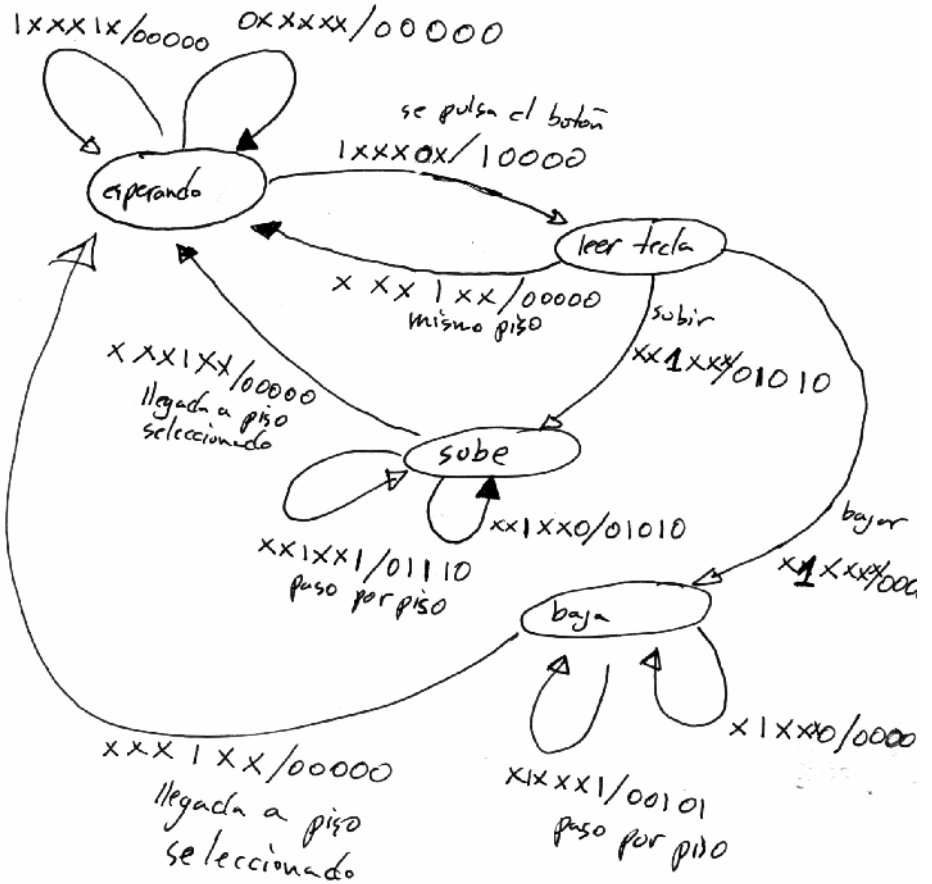 1xxx1x/00000
0xxxxx/00000
se pulsa el botón
1xxx0x/10000
esperando
leer tecla
xxx1xx/00000
mismo piso
subir
xx1xxx/01010
xxx1xx/00000
llegada a piso
seleccionado
sube
xx1xx0/01010
xx1xx1/01110
paso por piso
bajar
x1xxxx/000
baja
x1xxx0/0000
x1xxx1/00101
paso por piso
xxx1xx/00000
llegada a piso
seleccionado